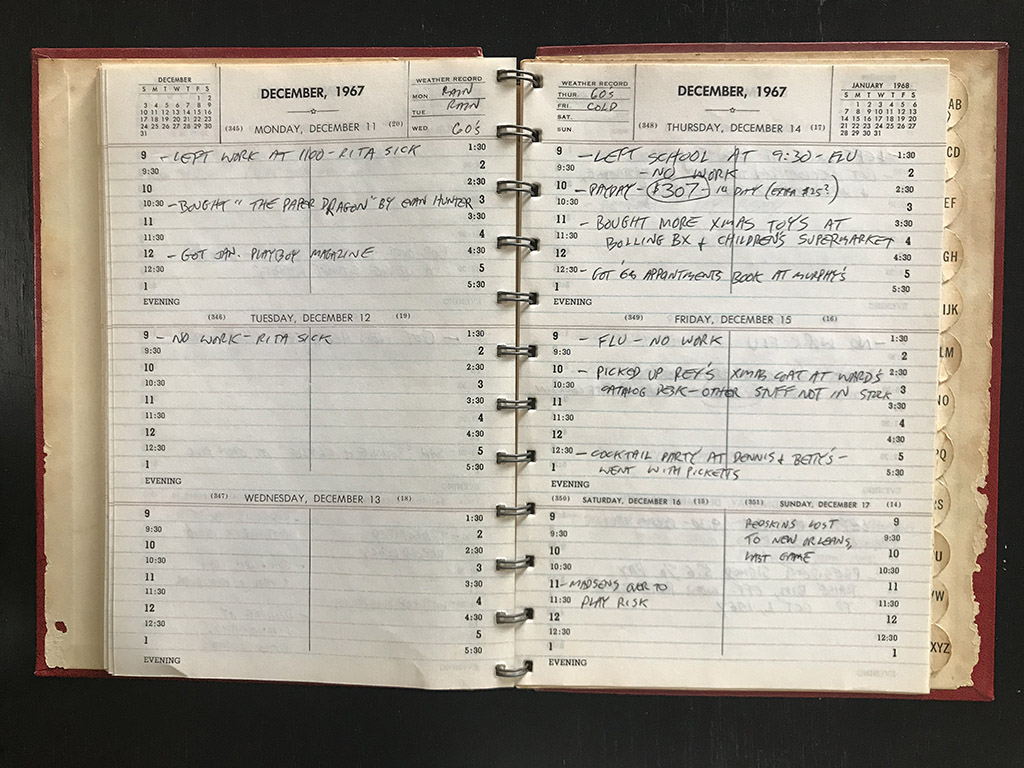 DECEMBER
S M T W T F S
1 2
3 4 5 6 7 8 9
10 11 12 13 14 15 16
17 18 19 20 21 22 23
24 25 26 27 28 29 30
31
DECEMBER, 1967
WEATHER RECORD
MON RAIN
TUE RAIN
WED 60'S
(345) MONDAY, DECEMBER 11 (20)
9 - LEFT WORK AT 1100 - RITA SICK 1:30
9:30 2
10 2:30
10:30 - BOUGHT "THE PAPER DRAGON" BY EVAN HUNTER 3
11 3:30
11:30 4
12 - GOT JAN. PLAYBOY MAGAZINE 4:30
12:30 5
1 5:30
EVENING
(346) TUESDAY, DECEMBER 12 (19)
9 - NO WORK - RITA SICK 1:30
9:30 2
10 2:30
10:30 3
11 3:30
11:30 4
12 4:30
12:30 5
1 5:30
EVENING
(347) WEDNESDAY, DECEMBER 13 (18)
9 1:30
9:30 2
10 2:30
10:30 3
11 3:30
11:30 4
12 4:30
12:30 5
1 5:30
EVENING
WEATHER RECORD
THUR. 60'S
FRI. COLD
SAT.
SUN
DECEMBER, 1967
JANUARY 1968
S M T W T F S
1 2 3 4 5 6
7 8 9 10 11 12 13
14 15 16 17 18 19 20
21 22 23 24 25 26 27
28 29 30 31
(348) THURSDAY, DECEMBER 14 (17)
9 - LEFT SCHOOL AT 9:30 - FLU 1:30
9:30 - NO WORK 2
10 - PAYDAY - $307 - 14 DAY (EXTRA $25?) 2:30
10:30 3
11 - BOUGHT MORE XMAS TOYS AT 3:30
11:30 BOLLING BX & CHILDREN'S SUPERMARKET 4
12 4:30
12:30 - GOT '68 APPOINTMENTS BOOK AT MURPHY'S 5
1 5:30
EVENING
(349) FRIDAY, DECEMBER 15 (16)
9 - FLU - NO WORK 1:30
9:30 2
10 - PICKED UP REY'S XMAS COAT AT WARD'S 2:30
10:30 CATALOG DESK - OTHER STUFF NOT IN STOCK 3
11 3:30
11:30 4
12 4:30
12:30 - COCKTAIL PARTY AT DENNIS & BETTY'S - 5
1 WENT WITH PICKETTS 5:30
EVENING
(350) SATURDAY, DECEMBER 16 (15) (351) SUNDAY, DECEMBER 17 (14)
9 REDSKINS LOST 9
9:30 TO NEW ORLEANS, 9:30
10 LAST GAME 10
10:30 10:30
11 - MADSENS OVER TO 11
11:30 PLAY RISK 11:30
12 12
12:30 12:30
1 1
EVENING
AB
CD
EF
GH
IJK
LM
NO
PQ
RS
TU
VW
XYZ